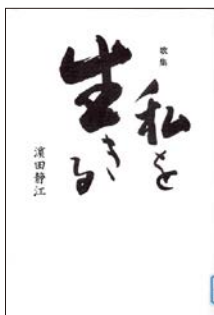 歌集
私を
生きる
濱田静江